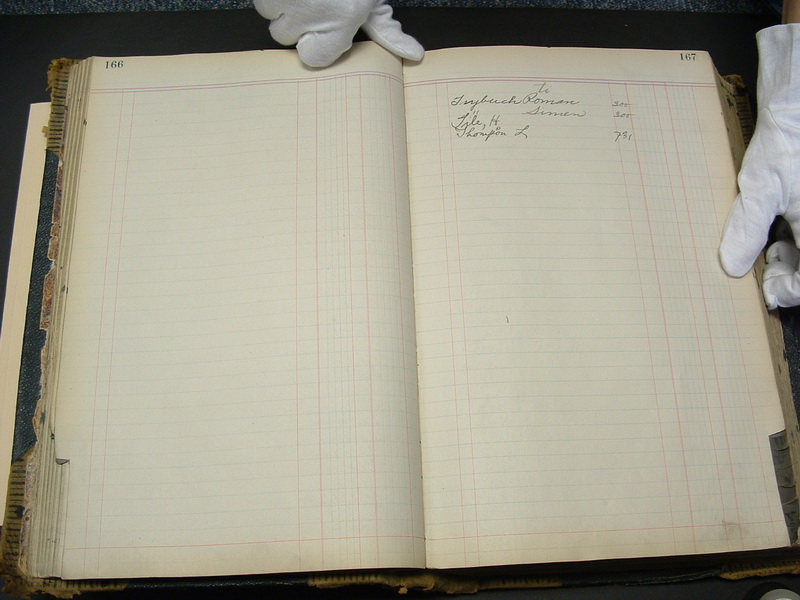 166
167
to
Trybuch Roman 300
" Simon 300
Tyle, H
Thompson L 791